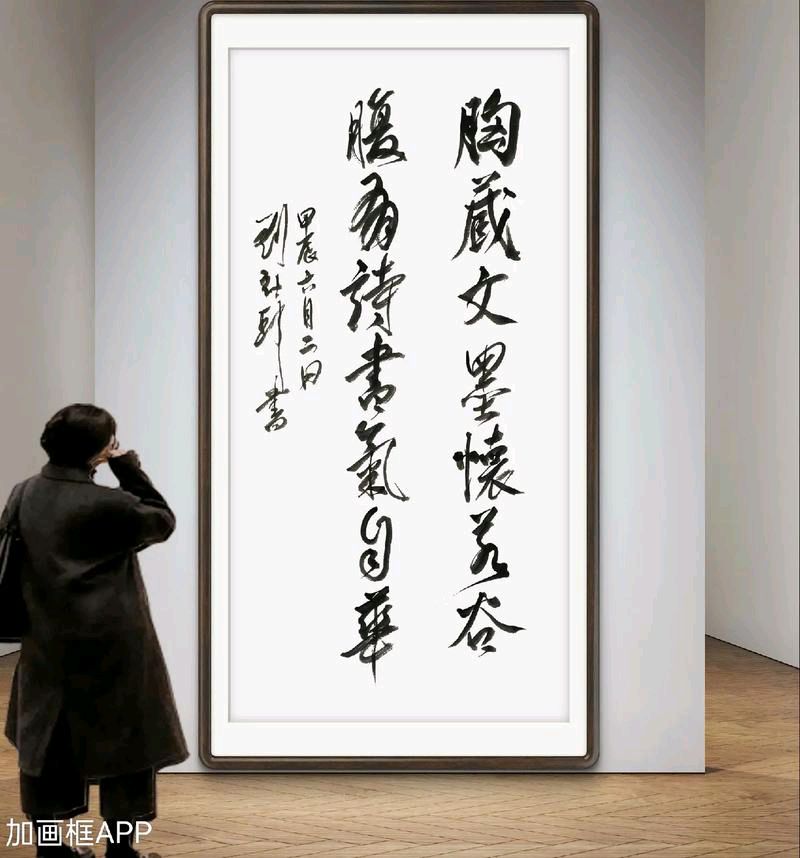 胸藏文墨懷若谷
腹有詩書氣自華
甲辰六月二日
劉書
加画框APP